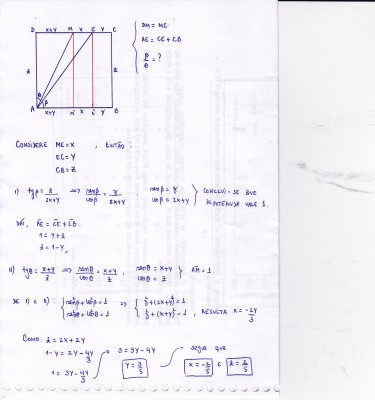 D x+y M x E y C
DM = MC
AE = CE + CB
β/θ = ?
z
z
θ
β
A x+y M' x E' y B
CONSIDERE ME = X , ENTÃO :
EC = Y
CB = Z
I) tgβ = z/2x+y ⟹ senβ/cosβ = z/2x+y , senβ = z cosβ = 2x+y } CONCLUI-SE QUE HIPOTENUSA VALE 1.
DAÍ, AE = CE + CB
1 = y + z
z = 1 - y
II) tgθ = x+y/z ⟹ senθ/cosθ = x+y/z , senθ = x+y cosθ = z } AM = 1.
DE I) E II) : { sen²β + cos²β = 1 sen²θ + cos²θ = 1 ⟹ { z² + (2x+y)² = 1 z² + (x+y)² = 1 , RESULTA x = -2y/3
COMO z = 2x + 2y
1 - y = 2y - 4y/3
1 = 3y - 4y/3
3 = 9y - 4y
y = 3/5
segue que
x = -2/5 E z = 2/5